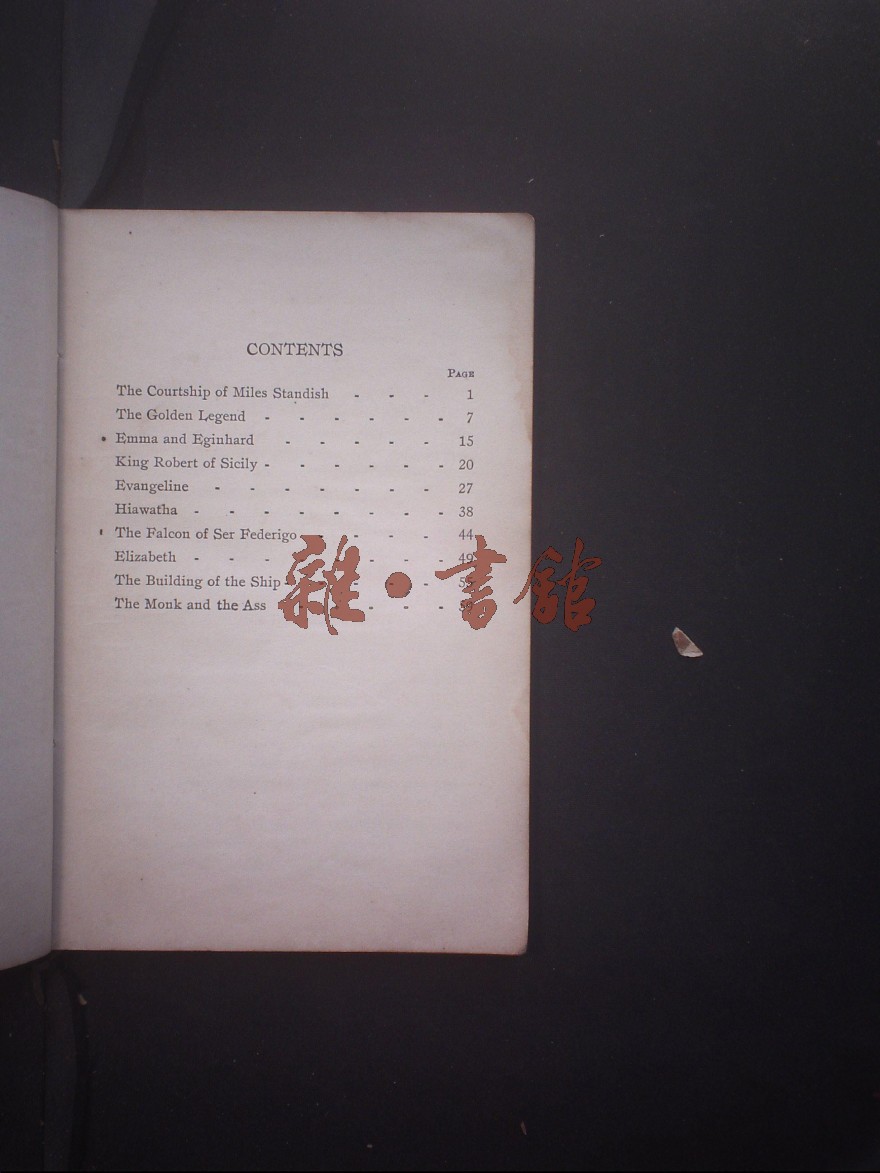 CONTENTS
PAGE
The Courtship of Miles Standish - - - 1
The Golden Legend - - - - - - 7
Emma and Eginhard - - - - - 15
King Robert of Sicily - - - - - - 20
Evangeline - - - - - - - 27
Hiawatha - - - - - - - - 38
The Falcon of Ser Federigo - - - 44
Elizabeth - - - - - - - 49
The Building of the Ship - - - - -
The Monk and the Ass - - - - - 59
雜·書館